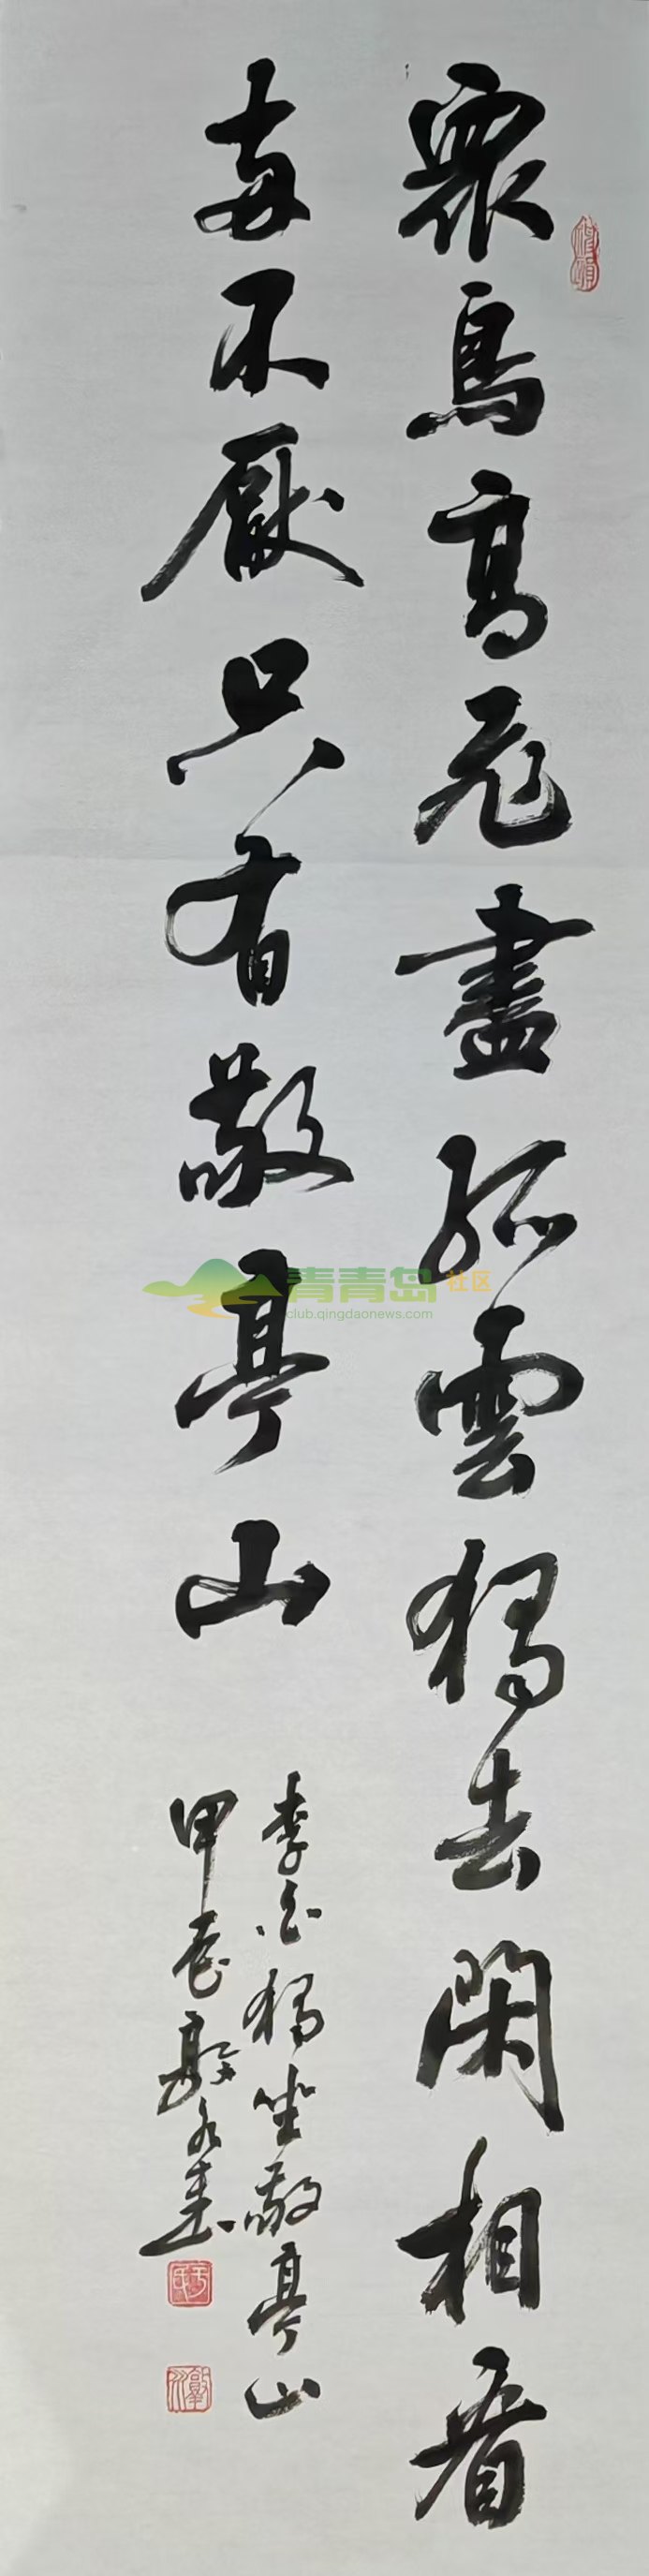 衆鳥高飛盡孤雲獨去閑相看
两不厭只有敬亭山
李白獨坐敬亭山
甲辰
青青岛社区
club.qingdaonews.com